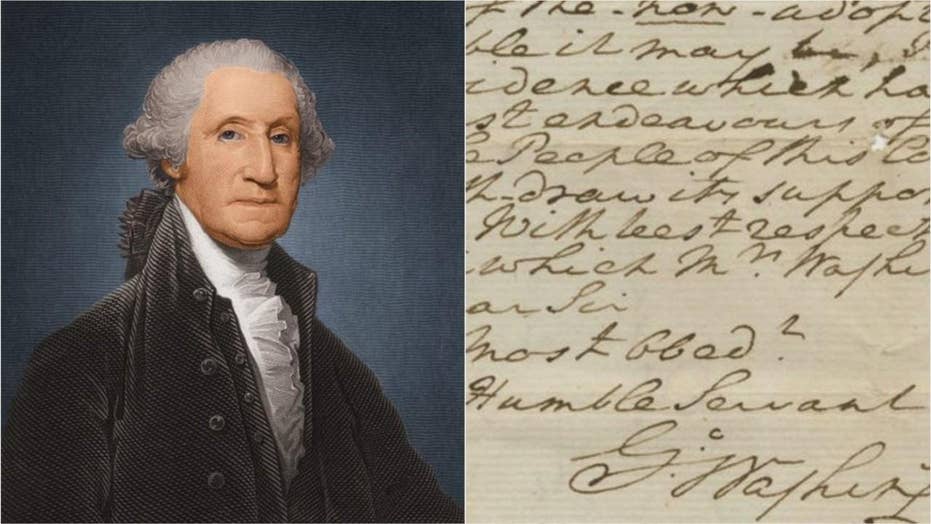 of the non-adop
ble it may be,
idence which ha
st endeavours of
e People of this Co
th-draw its suppor
With best respect
which Mrs. Washi
ar Sir
most obedt
Humble Servant
Go: Washing